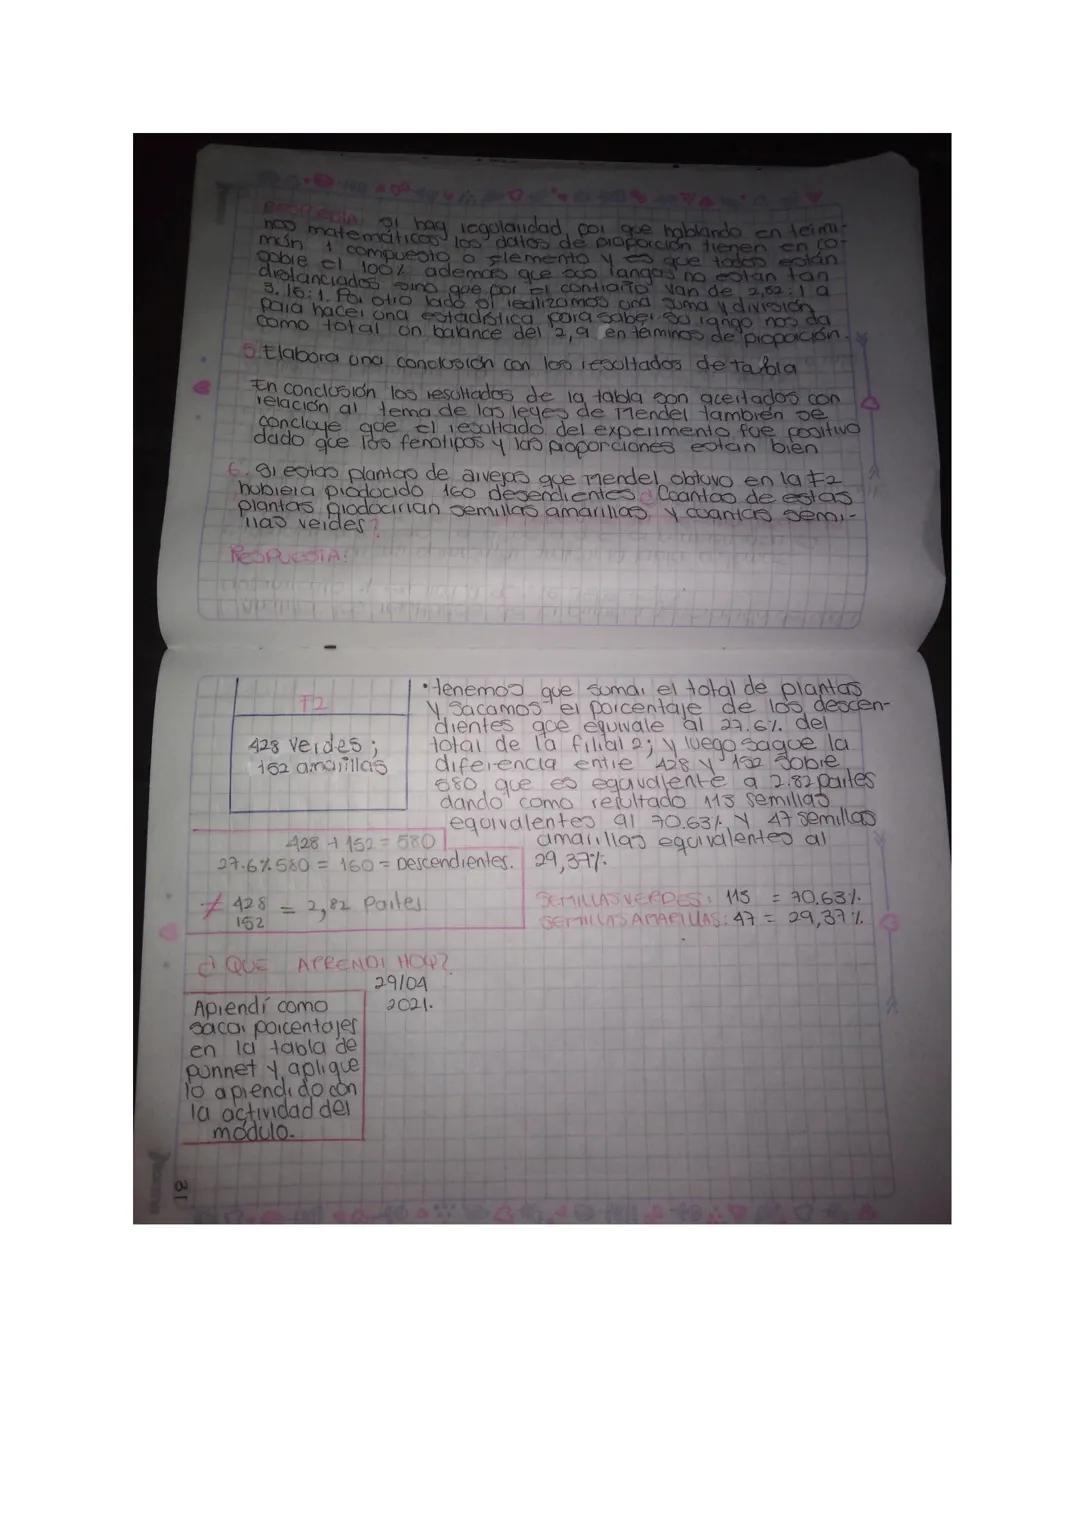 RESPUESTA: si hay regularidad, por que hablando en termi-
nos matematicos los datos de proporción tienen en co-
mún 1 compuesto o elemento y es que todos están
sobre el 100% ademas que sus rangos no estan tan
distanciados sino que por el contrario van de 2,82:1 a
3.15:1. Por otro lado si realizamos una suma y división
para hacer una estadistica para saber su rango nos da
como total un balance del 2,9 en terminos de proporción.
5. Elabora una conclusión con los resultados de tabla
En conclusión los resultados de la tabla son acertados con
relación al tema de las leyes de Mendel también se
concluye que El resultado del experimento fue positivo
dado que los fenotipos y las proporciones estan bien
6. Si estas plantas de arvejas que mendel obtuvo en la F2
hubiera producido 160 desendientes ¿Cuantas de estas
plantas producirian semillas amarillas y cuantas semi-
llas verdes?
RESPUESTA:
F2
428 verdes;
152 amarillas
• tenemos que sumar el total de plantas
y sacamos el porcentaje de los descen-
dientes que equivale al 27.6% del
total de la filial 2; y luego saque la
diferencia entre 428 y 152 sobre
580 que es equivalente a 2.82 partes
dando como resultado 113 semillas
equivalentes al 70.63% y 47 semillas
amarillas equivalentes al
29,37%.
428 + 152 = 580
27.6% 580 = 160 = Descendientes.
≠ 428 = 2,82 Partes
152
SEMILLAS VERDES: 113 = 70.63%.
SEMILLAS AMARILLAS: 47 = 29,37%.
¿QUE APRENDI HOY?
29/04
2021.
Aprendí como
sacar porcentajes
en la tabla de
punnet y aplique
lo aprendido con
la actividad del
módulo.
31